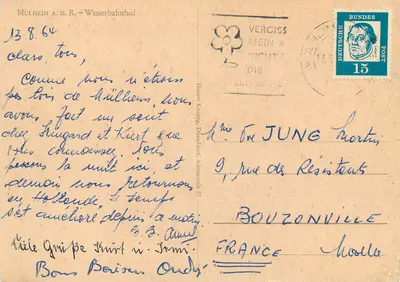 MÜLHEIM A. D. R. – Wasserbahnhof
13.8.64
chers tous,
Comme nous n'étions
pas loin de Mülheim, nous
avons fait un saut
chez Irmgard et Kurt que
vous connaissez. Nous
passons la nuit ici, et
demain nous retournons
en Hollande. le temps
s'est amélioré depuis ce matin.
B. B.
Viele Grüße Kurt u. Irmi.
Bons Baisers
VERGISS
MEIN
NICHT
DIE
DEUTSCHE BUNDESPOST
15
JUNG Martin
9, rue des Résistants
BOUZONVILLE
FRANCE Moselle